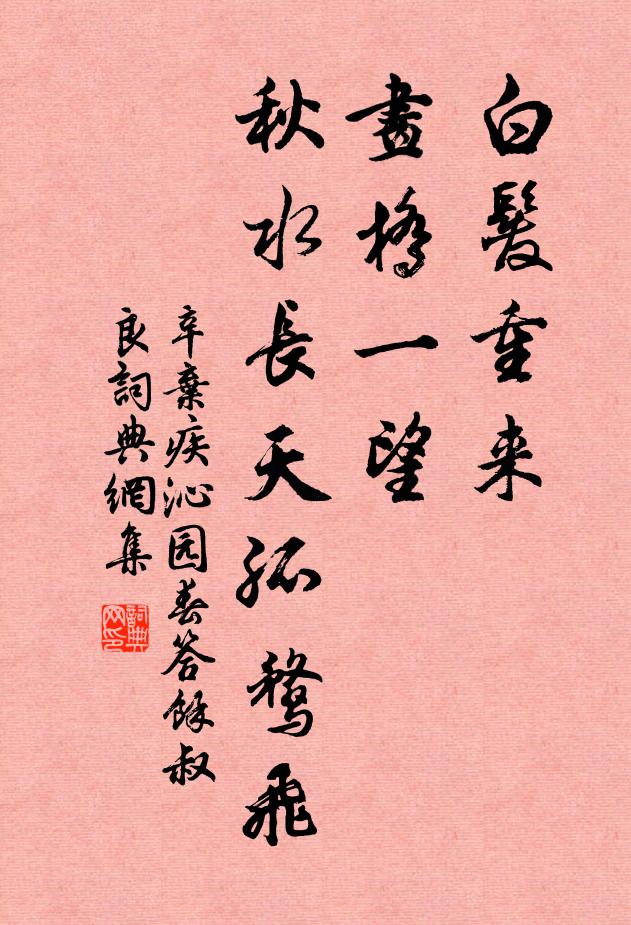 白髮重来
畫橋一望
秋水長天孤鶩飛
辛棄疾沁园春答餘叔
良詞典網集
詞典網印